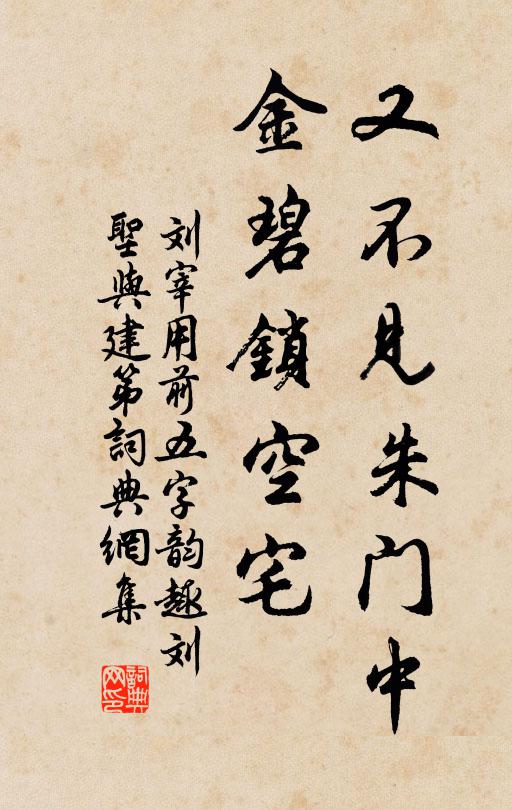 又不见朱门中
金碧鎖空宅
刘宰用前五字韵趣刘
聖與建第詞典網集
詞典网印